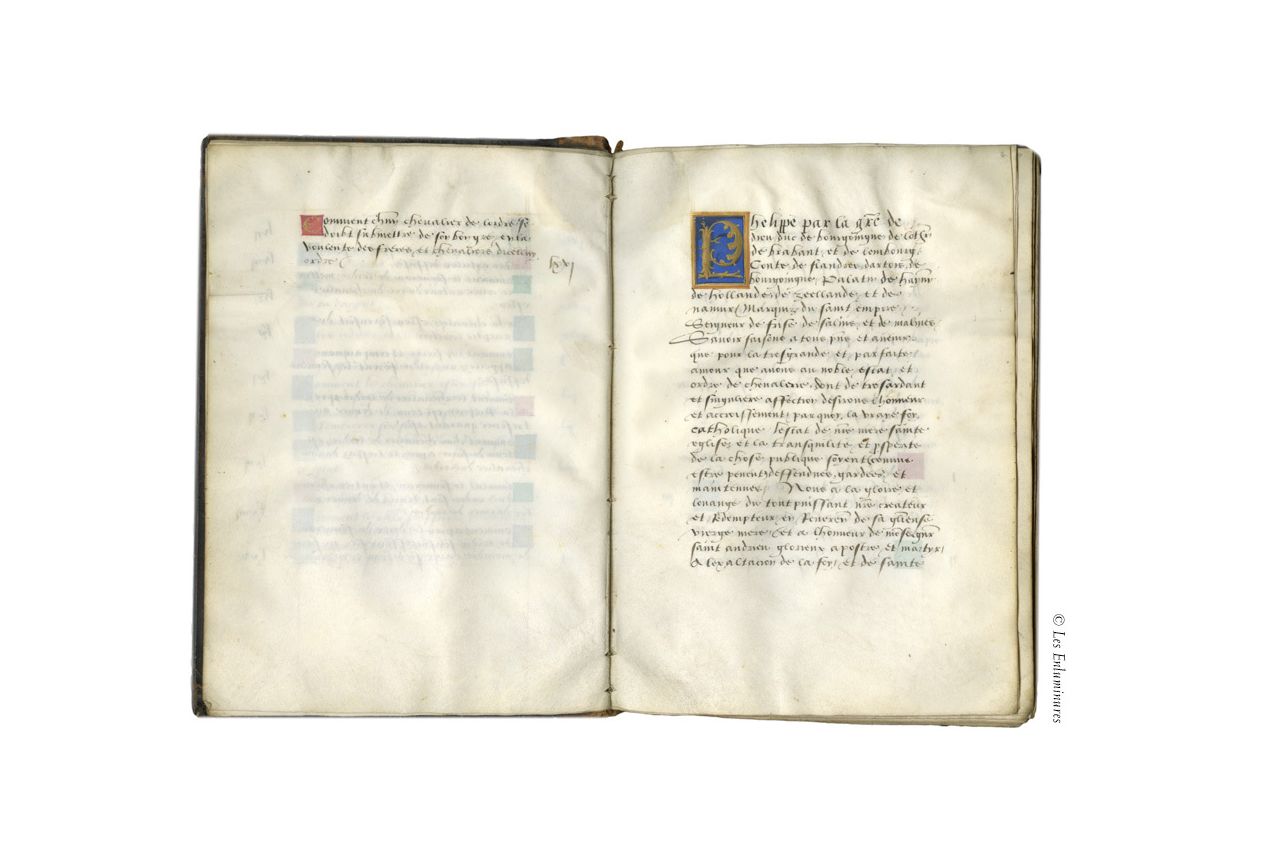 Comment chūn chevalier de lordre se
doibt submettre de son bon gre en la
voulente des freres et chevaliers diceluy
ordre
lxxj
Phelippe par la grc̄e de
dieu duc de bourgoingne de loth
de brabant et de lembourg
Conte de flandres dartois de
bourgoingne Palatin de hayn̄
de hollande de zeellande et de
namur Marquis du saint empire
Seigneur de frise de salins et de malines
Savoir faisons a tous pn̄s et avenir
que pour la tresgrande et parfaite
amour que avons au noble estat et
ordre de chevalerie dont de tresardant
et singuliere affection desirons lhonneur
et accroissement par quoy la vraye foy
catholique lestat de nr̄e mere sainte
eglise et la transquilite et prosperite
de la chose publique soyent comme
estre peuent deffendues gardees et
maintenues Nous a la gloire et
louange du tout puissant nr̄e createur
et Redempteur en Reveren̄ de sa glīeuse
vierge mere et a lhonneur de monseignr̄
saint andrieu glorieux apostre et martyr
A lexaltacion de la foy et de sainte
© Les Enluminures